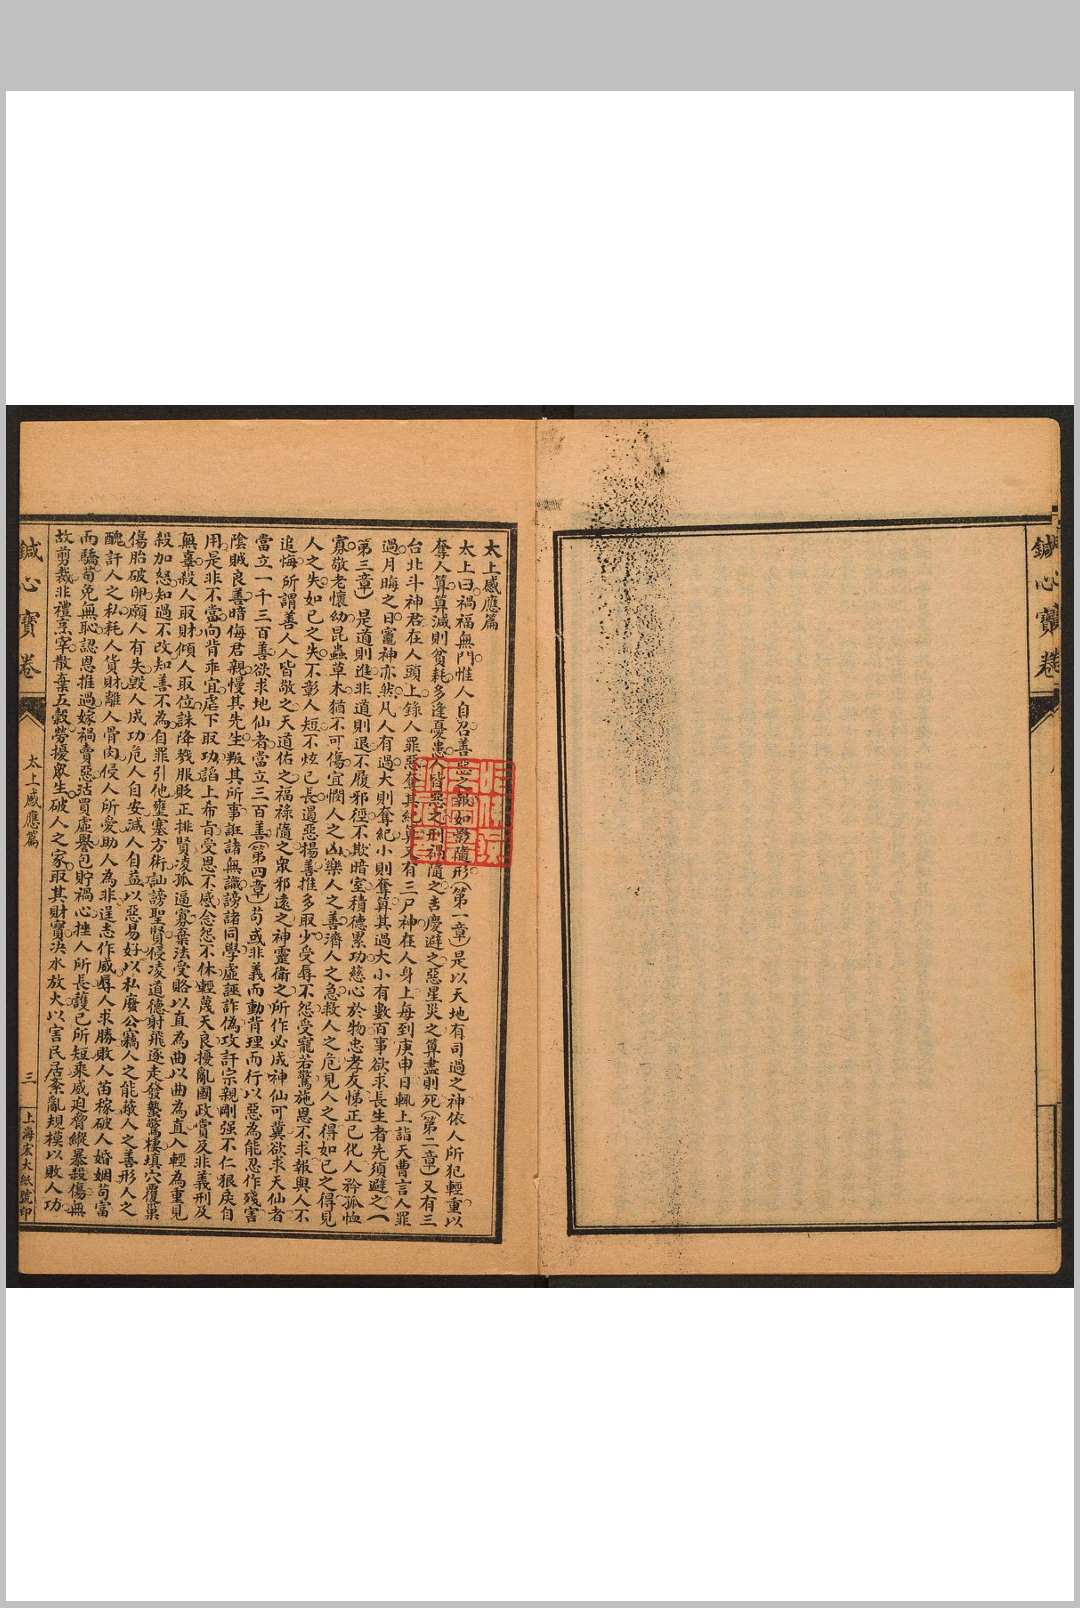 鍼心寶卷
太上感應篇
太上曰禍福無門惟人自召善惡之報如影隨形(第一章)是以天地有司過之神依人所犯輕重以
奪人算算減則貧耗多逢憂患人皆惡之刑禍隨之吉慶避之惡星災之算盡則死(第二章)又有三
台北斗神君在人頭上錄人罪惡奪其紀算又有三尸神在人身上每到庚申日輒上詣天曹言人罪
過月晦之日竈神亦然凡人有過大則奪紀小則奪算其過大小有數百事欲求長生者先須避之(
第三章)是道則進非道則退不履邪徑不欺暗室積德累功慈心於物忠孝友悌正己化人矜孤恤
寡敬老懷幼昆蟲草木猶不可傷宜憫人之凶樂人之善濟人之急救人之危見人之得如己之得見
人之失如己之失不彰人短不炫己長遏惡揚善推多取少受辱不怨受寵若驚施恩不求報與人不
追悔所謂善人人皆敬之天道佑之福祿隨之衆邪遠之神靈衛之所作必成神仙可冀欲求天仙者
當立一千三百善欲求地仙者當立三百善(第四章)苟或非義而動背理而行以惡為能忍作殘害
陰賊良善暗侮君親慢其先生叛其所事誑諸無識謗諸同學虛誣詐偽攻訐宗親剛强不仁狠戾自
用是非不當向背乖宜虐下取功諂上希旨受恩不感念怨不休輕蔑天良擾亂國政賞及非義刑及
無辜殺人取財傾人取位誅降戮服貶正排賢凌孤逼寡棄法受賂以直為曲以曲為直入輕為重見
殺加怒知過不改知善不為自罪引他壅塞方術訕謗聖賢侵凌道德射飛逐走發蟄驚棲填穴覆巢
傷胎破卵願人有失毀人成功危人自安減人自益以惡易好以私廢公竊人之能蔽人之善形人之
醜訐人之私耗人貨財離人骨肉侵人所愛助人為非逞志作威辱人求勝敗人苗稼破人婚姻苟富
而驕苟免無恥認恩推過嫁禍賣惡沽買虛譽包貯禍心挫人所長護己所短乘威迫脅縱暴殺傷無
故剪裁非禮烹宰散棄五穀勞擾眾生破人之家取其財寶決水放火以害民居紊亂規模以敗人功
鍼心寶卷
太上感應篇
三
上海宏大紙號印